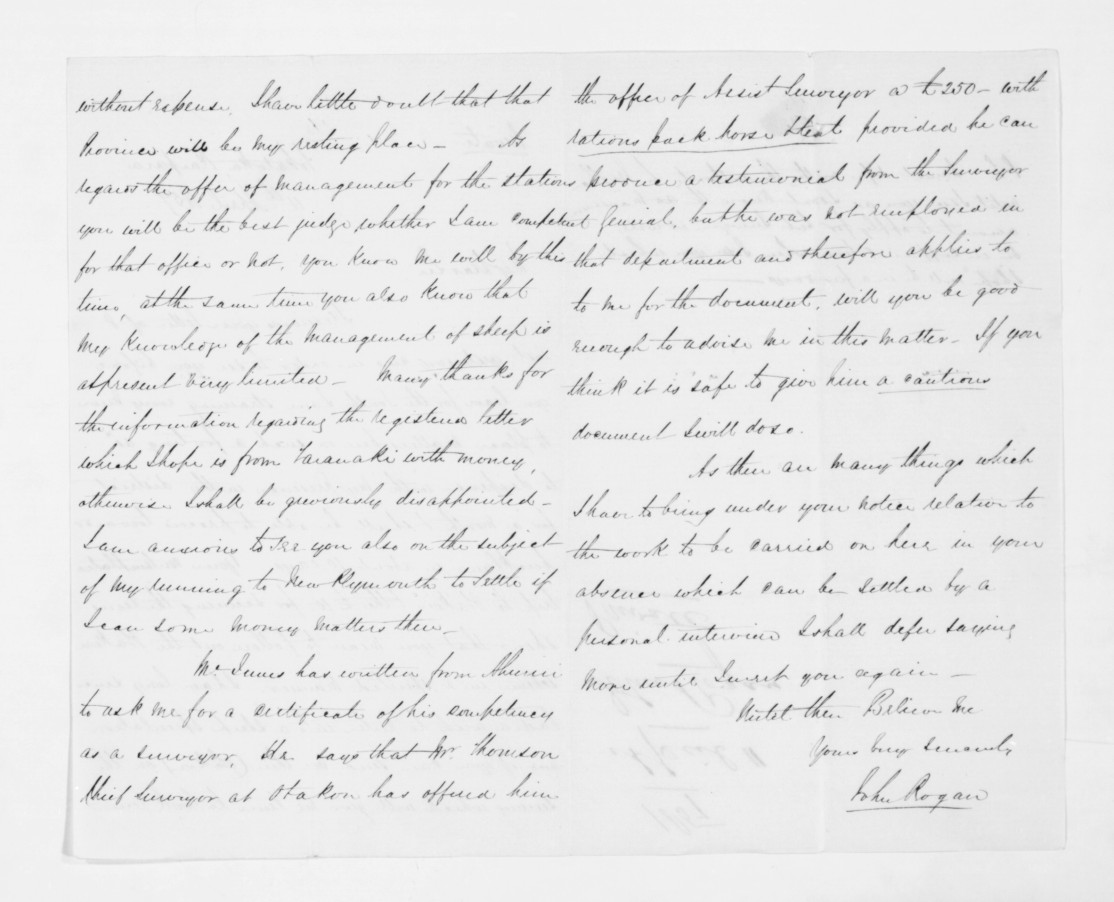 without expense. I have little doubt that that
Province will be my resting place — As
regards the offer of management for the stations
you will be the best judge whether I am competent
for that office or not, you know me will by this
time, at the same time you also know that
my knowledge of the management of sheep is
at present very limited — Many thanks for
the information regarding the registered letter
which I hope is from Taranaki with money,
otherwise I shall be grievously disappointed —
I am anxious to see you also on the subject
of my running to New Plymouth to settle if
I can some money matters there —
Mr. Innes has written from Ahuriri
to ask me for a certificate of his competency
as a surveyor. He says that Mr. Thomson
Chief Surveyor at Otakou has offered him
the office of Assist Surveyor a £250 — with
rations pack horse & tent provided he can
produce a testimonial from the Surveyor
General, but he was not employed in
that department and therefore applies to
to me for the document, will you be good
enough to advise me in this matter — If you
think it is safe to give him a cautious
document I will do so.
As there are many things which
I have to bring under your notice relative to
the work to be carried on here in your
absence which can be settled by a
personal interview I shall defer saying
more until I meet you again —
Until then Believe me
Yours very sincerely
John Rogan